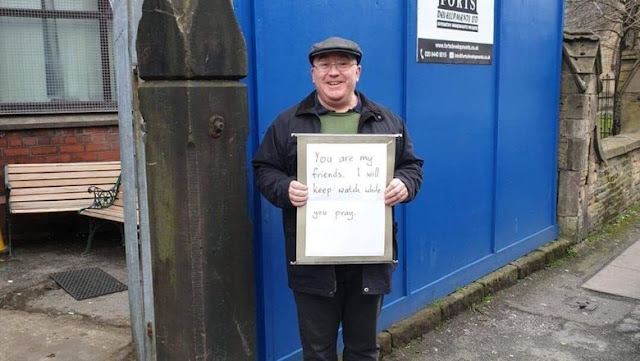 FORTS
DEVELOPMENTS LTD
www.fortsdevelopments.co.uk
You are my
friends. I will
keep watch while
you pray.